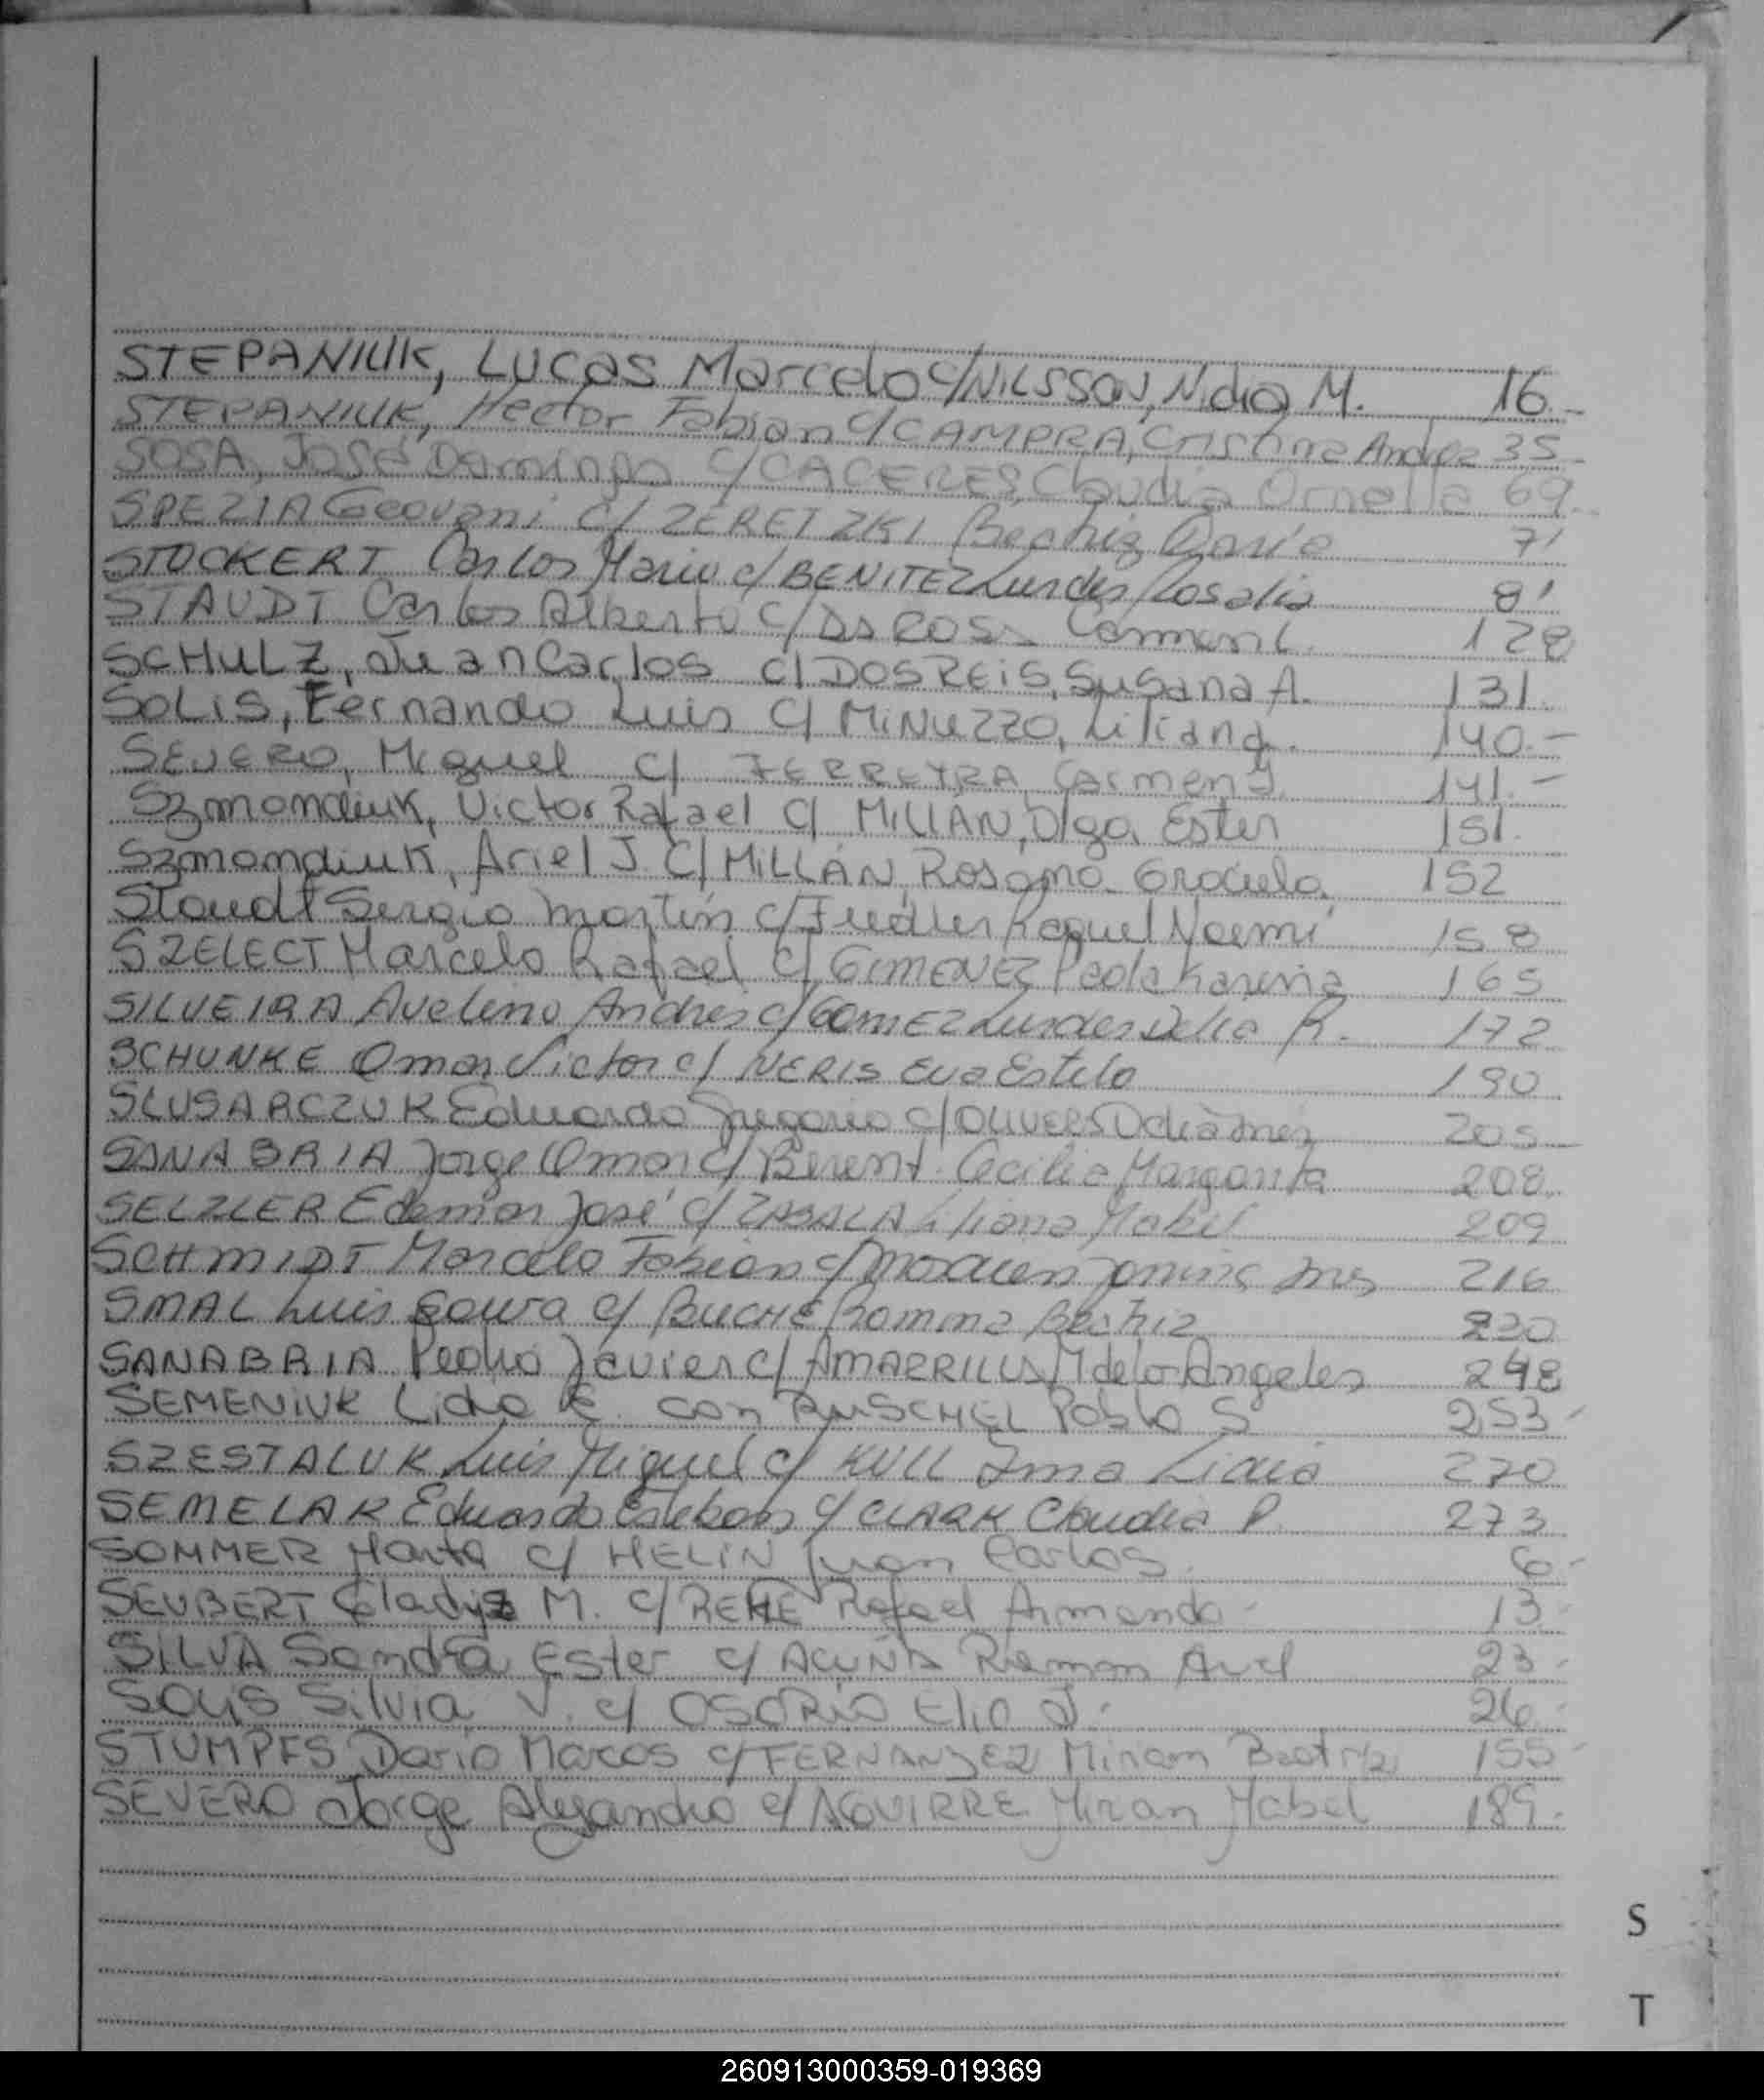 STEPANIUK, Lucas Marcelo c/ NILSSON, Nidia M. 16.-
STEPANIUK, Hector Fabian c/ CAMPRA, Cristina Andrea 35-
SOSA, José Domingo c/ CACERES, Claudia Ornella 69.
SPEZIA Geovani c/ ZERETZKI Beatriz María 71
STOCKERT Carlos Mario c/ BENITEZ Lurdes Rosalia 81
STAUDT Carlos Alberto c/ Carmen L. 128
SCHULZ, Juan Carlos c/ DOSREIS, Susana A. 131.
SOLIS, Fernando Luis c/ MINUZZO, Liliana. 140.-
SEVERO, Miguel c/ FERREYRA, Carmen 141.-
Szmondiuk, Victor Rafael c/ MILLÁN, Olga Ester 151.
Szmondiuk, Ariel J. c/ MILLÁN, Rosana Graciela. 152
Staudt Sergio Martín c/ Raquel Noemí 158
SZELECT Marcelo Rafael c/ GIMENEZ Paola Karina 165
SILVEIRA Avelino Andres c/ GOMEZ Lurdes Delia R. 172
SCHUNKE Omar Victor c/ NERIS Eva Estela 190
SLUSARCZUK Eduardo Gregorio c/ Inez 205
SANABRIA Jorge Omar c/ Berent Cecilia Margarita 208.
SELZLER Edemar José c/ ZASALA Liliana Mabel 209
SCHMIDT Marcelo Fabian c/ 216
SMAL Luis c/ BUCHE Romina Beatriz 230
SANABRIA Pedro Javier c/ AMARRILLAS M de los Angeles 248
SEMENIUK Lidia E. con RUSCHEL Pablo S 253-
SZESTALUK Luis Miguel c/ KULL Irma Lidia 270
SEMELAK Eduardo Esteban c/ CLARK Claudia P. 273
SOMMER Marta c/ HELIN Juan Carlos. 6-
SEUBERT Gladyz M. c/ REHE Rafael Armando- 13-
SILVA Sandra Ester c/ ACUÑA Ramon 23-
SOLIS Silvia V. c/ OSORIO Elio J. 26-
STUMPFS Dario Marcos c/ FERNANDEZ Miriam Beatriz 155-
SEVERO Jorge Alejandro c/ AGUIRRE Miran Mabel 189.-
S
T
260913000359-019369